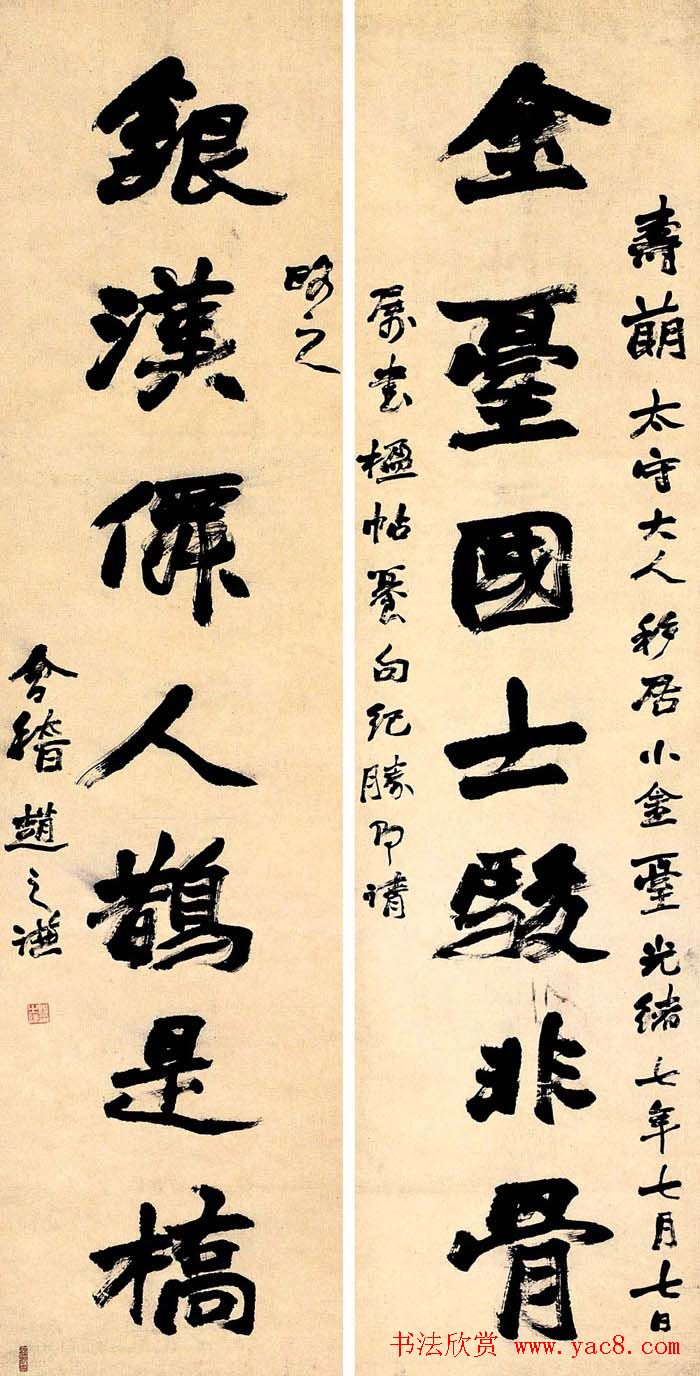 壽萠太守大人移居小金臺光緒七年七月七日
金臺國士駿非骨
屬書楹帖句紀勝即請
之
銀漢僊人鵲是橋
會稽趙之謙
书法欣赏 www.yac8.com